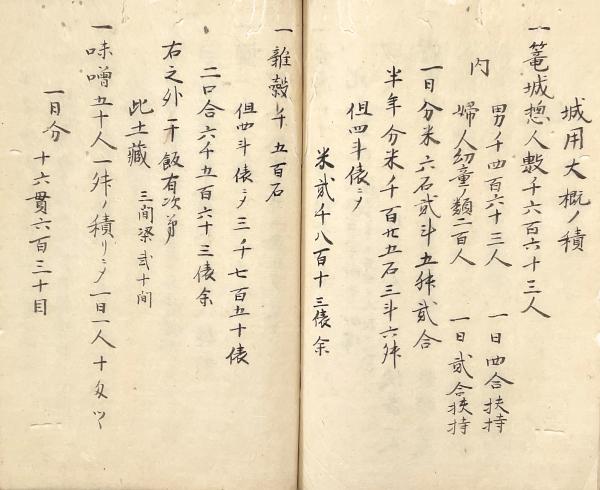 城用大概ノ積
一篭城惣人數千六百六十三人
内
男千四百六十三人 一日四合扶持
婦人幼童ノ類二百人 一日貳合扶持
一日分米六石貳斗五舛貳合
半年分米千百廿五石三斗六舛
但四斗俵ニ〆
米貳千八百十三俵余
一雜穀千五百石
但四斗俵ニ〆三千七百五十俵
二口合六千五百六十三俵余
右之外干飯有次第
此土藏 三間梁貳十間
一味噌五十人一舛ノ積リニ〆一日一人十匁ツヽ
一日分十六貫六百三十目